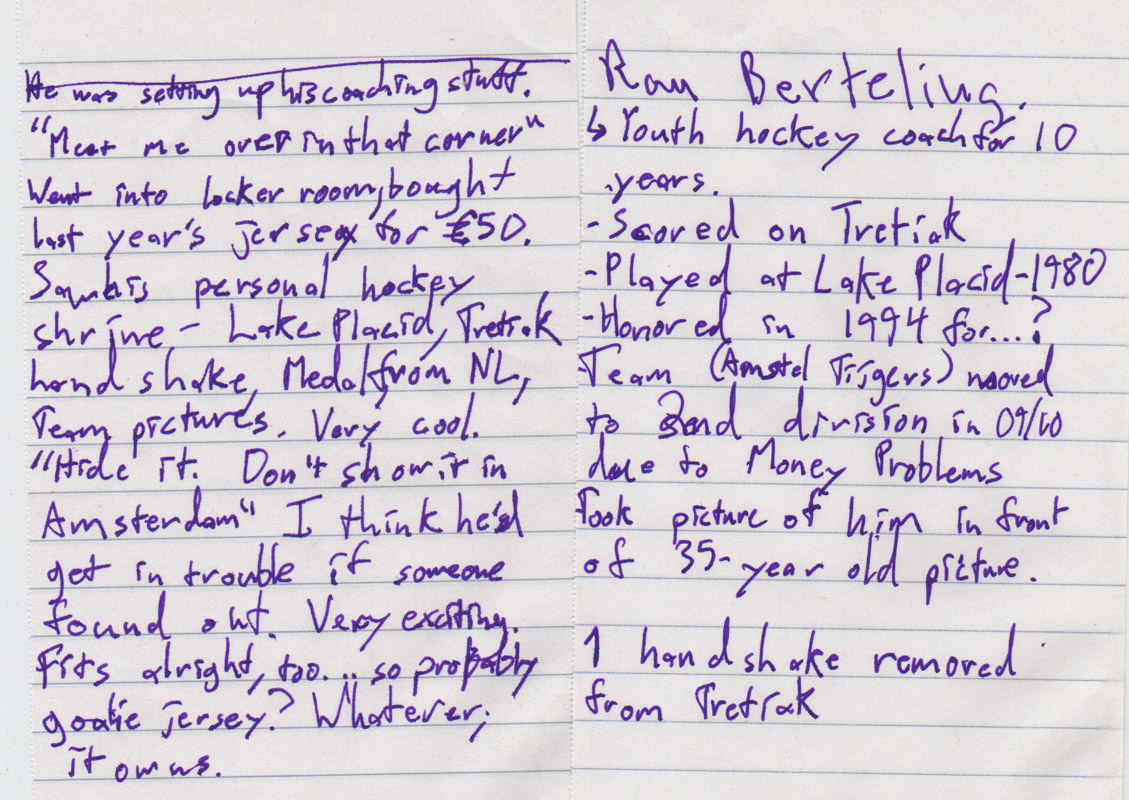 He was setting up his coaching stuff.
"Meet me over in that corner"
Went into locker room, bought
last year's jersey for €50.
Saw his personal hockey
shrine - Lake Placid, Tretiak
handshake, Medal from NL,
Team pictures. Very cool.
"Hide it. Don't show it in
Amsterdam" I think he'd
get in trouble if someone
found out. Very exciting.
Fits alright, too... so probably
goalie jersey? Whatever,
it owns.
Ron Berteling.
↳ Youth hockey coach for 10
years.
- Scored on Tretiak
- Played at Lake Placid - 1980
- Honored in 1994 for...?
Team (Amstel Tijgers) moved
to 2nd division in 09/10
due to Money Problems
Took picture of him in front
of 35-year old picture.
1 handshake removed
from Tretiak